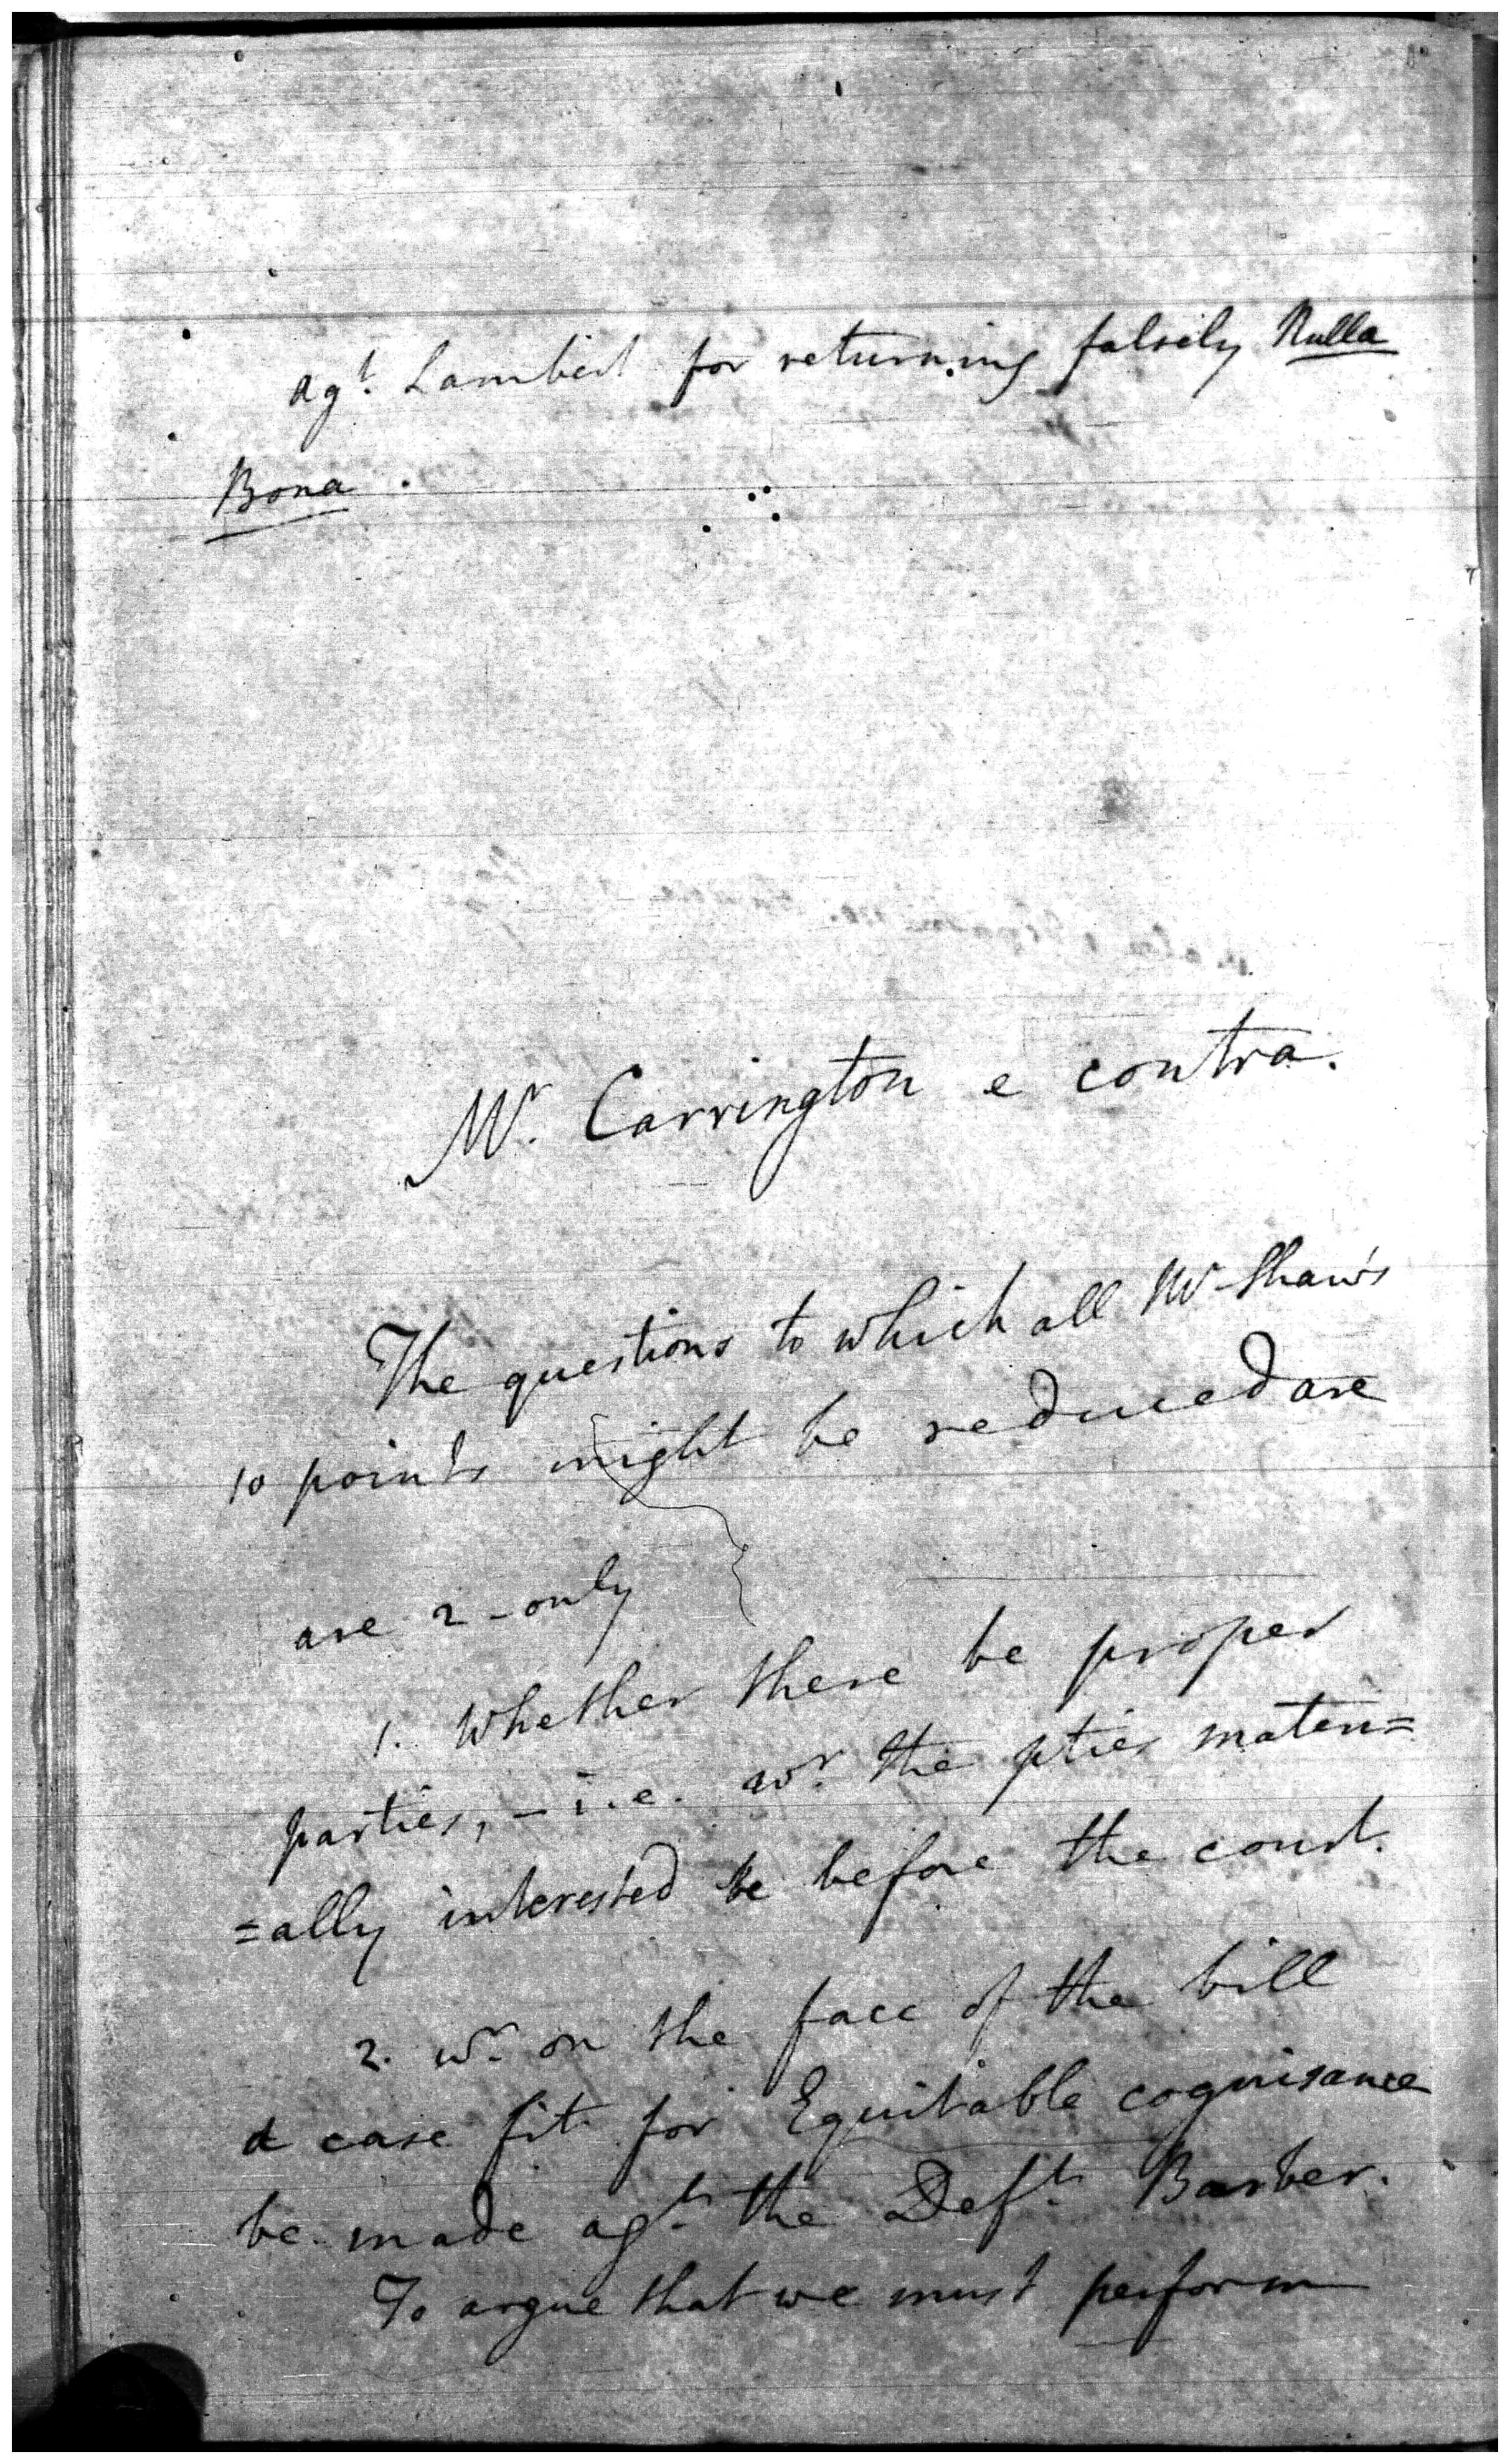 agt. Lambert for returning falsely Nulla
Bona.
Mr. Carrington e contra.
The questions to which all Mr Shaw's
10 points might be reduced are
are 2 - only
1. Whether there be proper
parties, - i.e. wr. the pties materi=
=ally interested be before the court.
2. wr. on the face of the bill
a case fit for Equitable cognisance
be made agt. the Deft. Barber.
To argue that we must perform